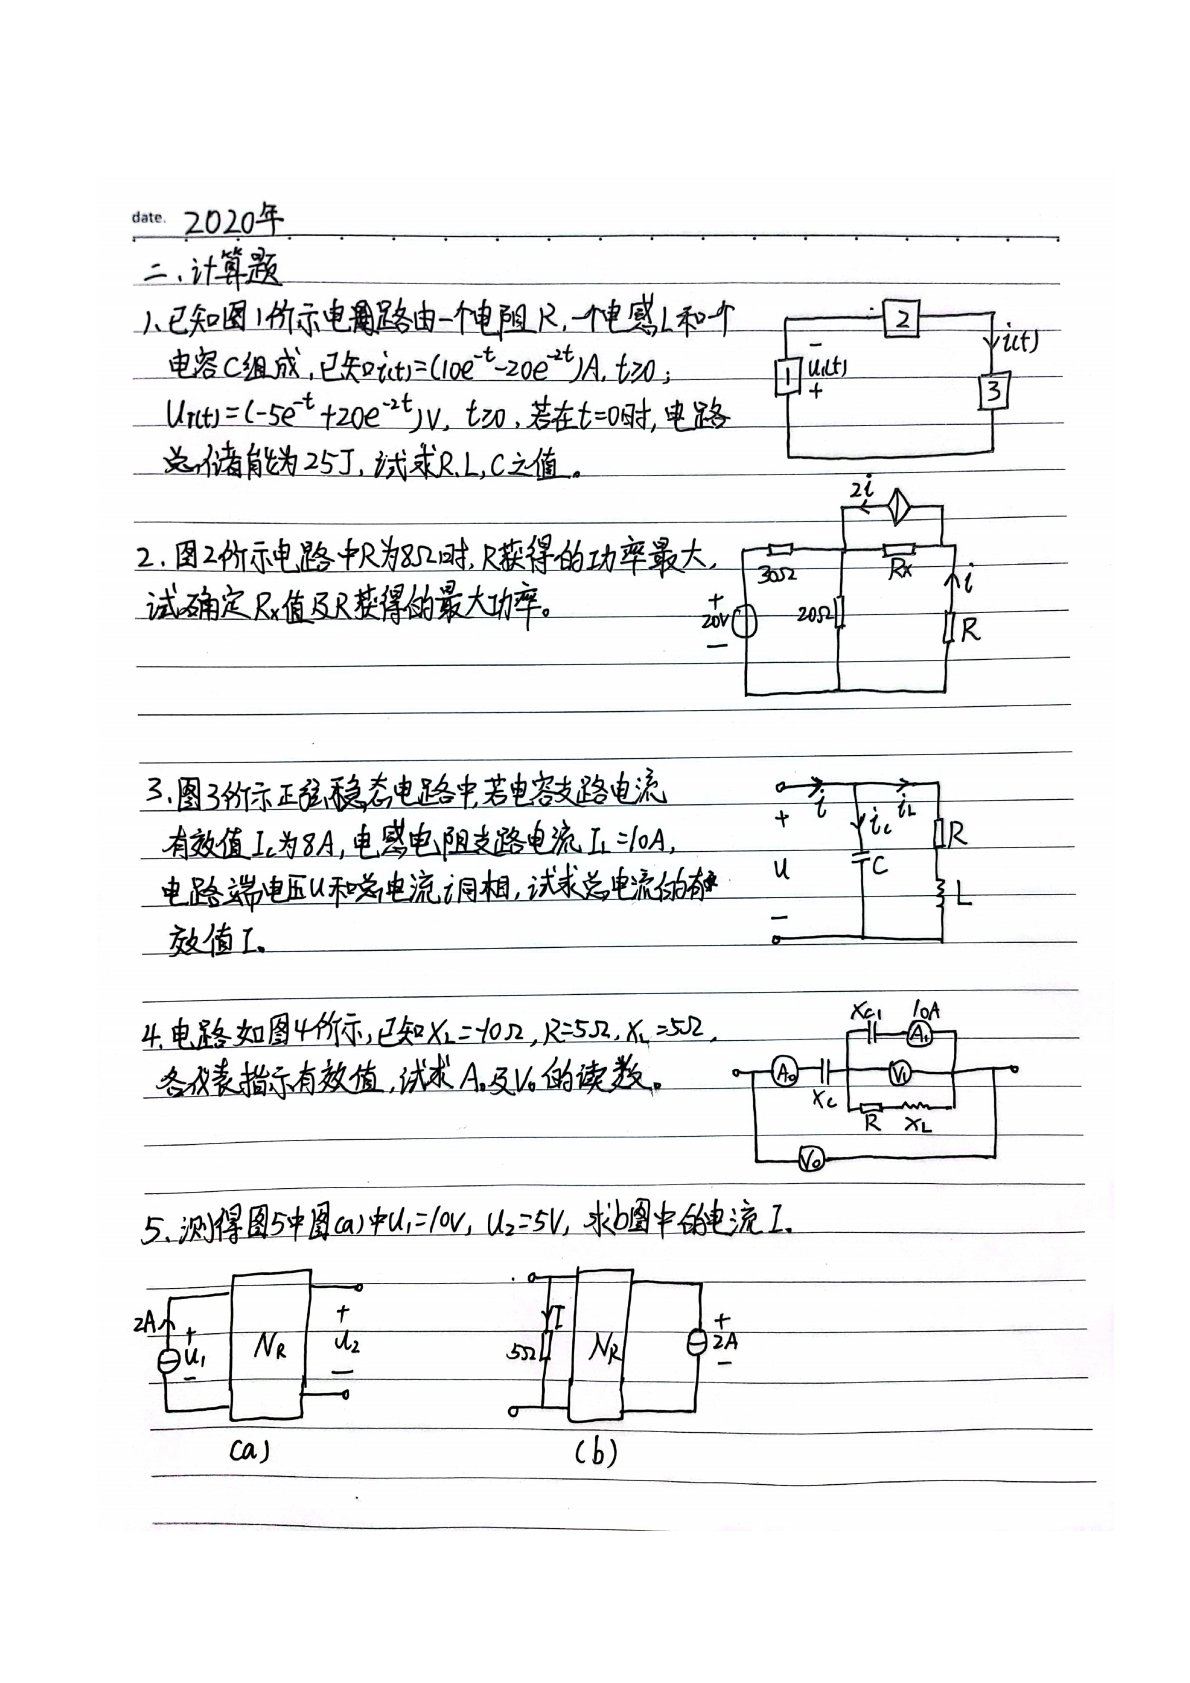 date. 2020年
二、计算题
1、已知图1所示电路由一个电阻R,一个电感L和一个
电容C组成,已知i(t)=(10e^{-t}-20e^{-2t})A, t≥0;
U₁(t)=(-5e^{-t}+20e^{-2t})V, t≥0,若在t=0时,电路
总储能为25J,试求R,L,C之值。
2
i(t)
- U₁(t) +
1
3
2i
2.图2所示电路中R为8Ω时,R获得的功率最大,
试确定Rx值及R获得的最大功率。
30Ω
Rx
i
+ 20V -
20Ω
R
3.图3所示正弦稳态电路中,若电容支路电流
有效值Ic为8A,电感电阻支路电流IL=10A,
电路端电压U和总电流i同相,试求总电流的有
效值I。
i
iL
+
ic
R
U
C
L
-
4.电路如图4所示,已知XL=-10Ω,R=5Ω,XL=5Ω,
各仪表指示有效值,试求A₀及V₀的读数。
Xc1
10A
A₁
A₀
Xc
V₁
R
XL
V₀
5.测得图5中图(a)中U₁=10V, U₂=5V, 求b图中的电流I.
2A
+ U₁ -
NR
+ U₂ -
(a)
I
5Ω
NR
+ 2A -
(b)